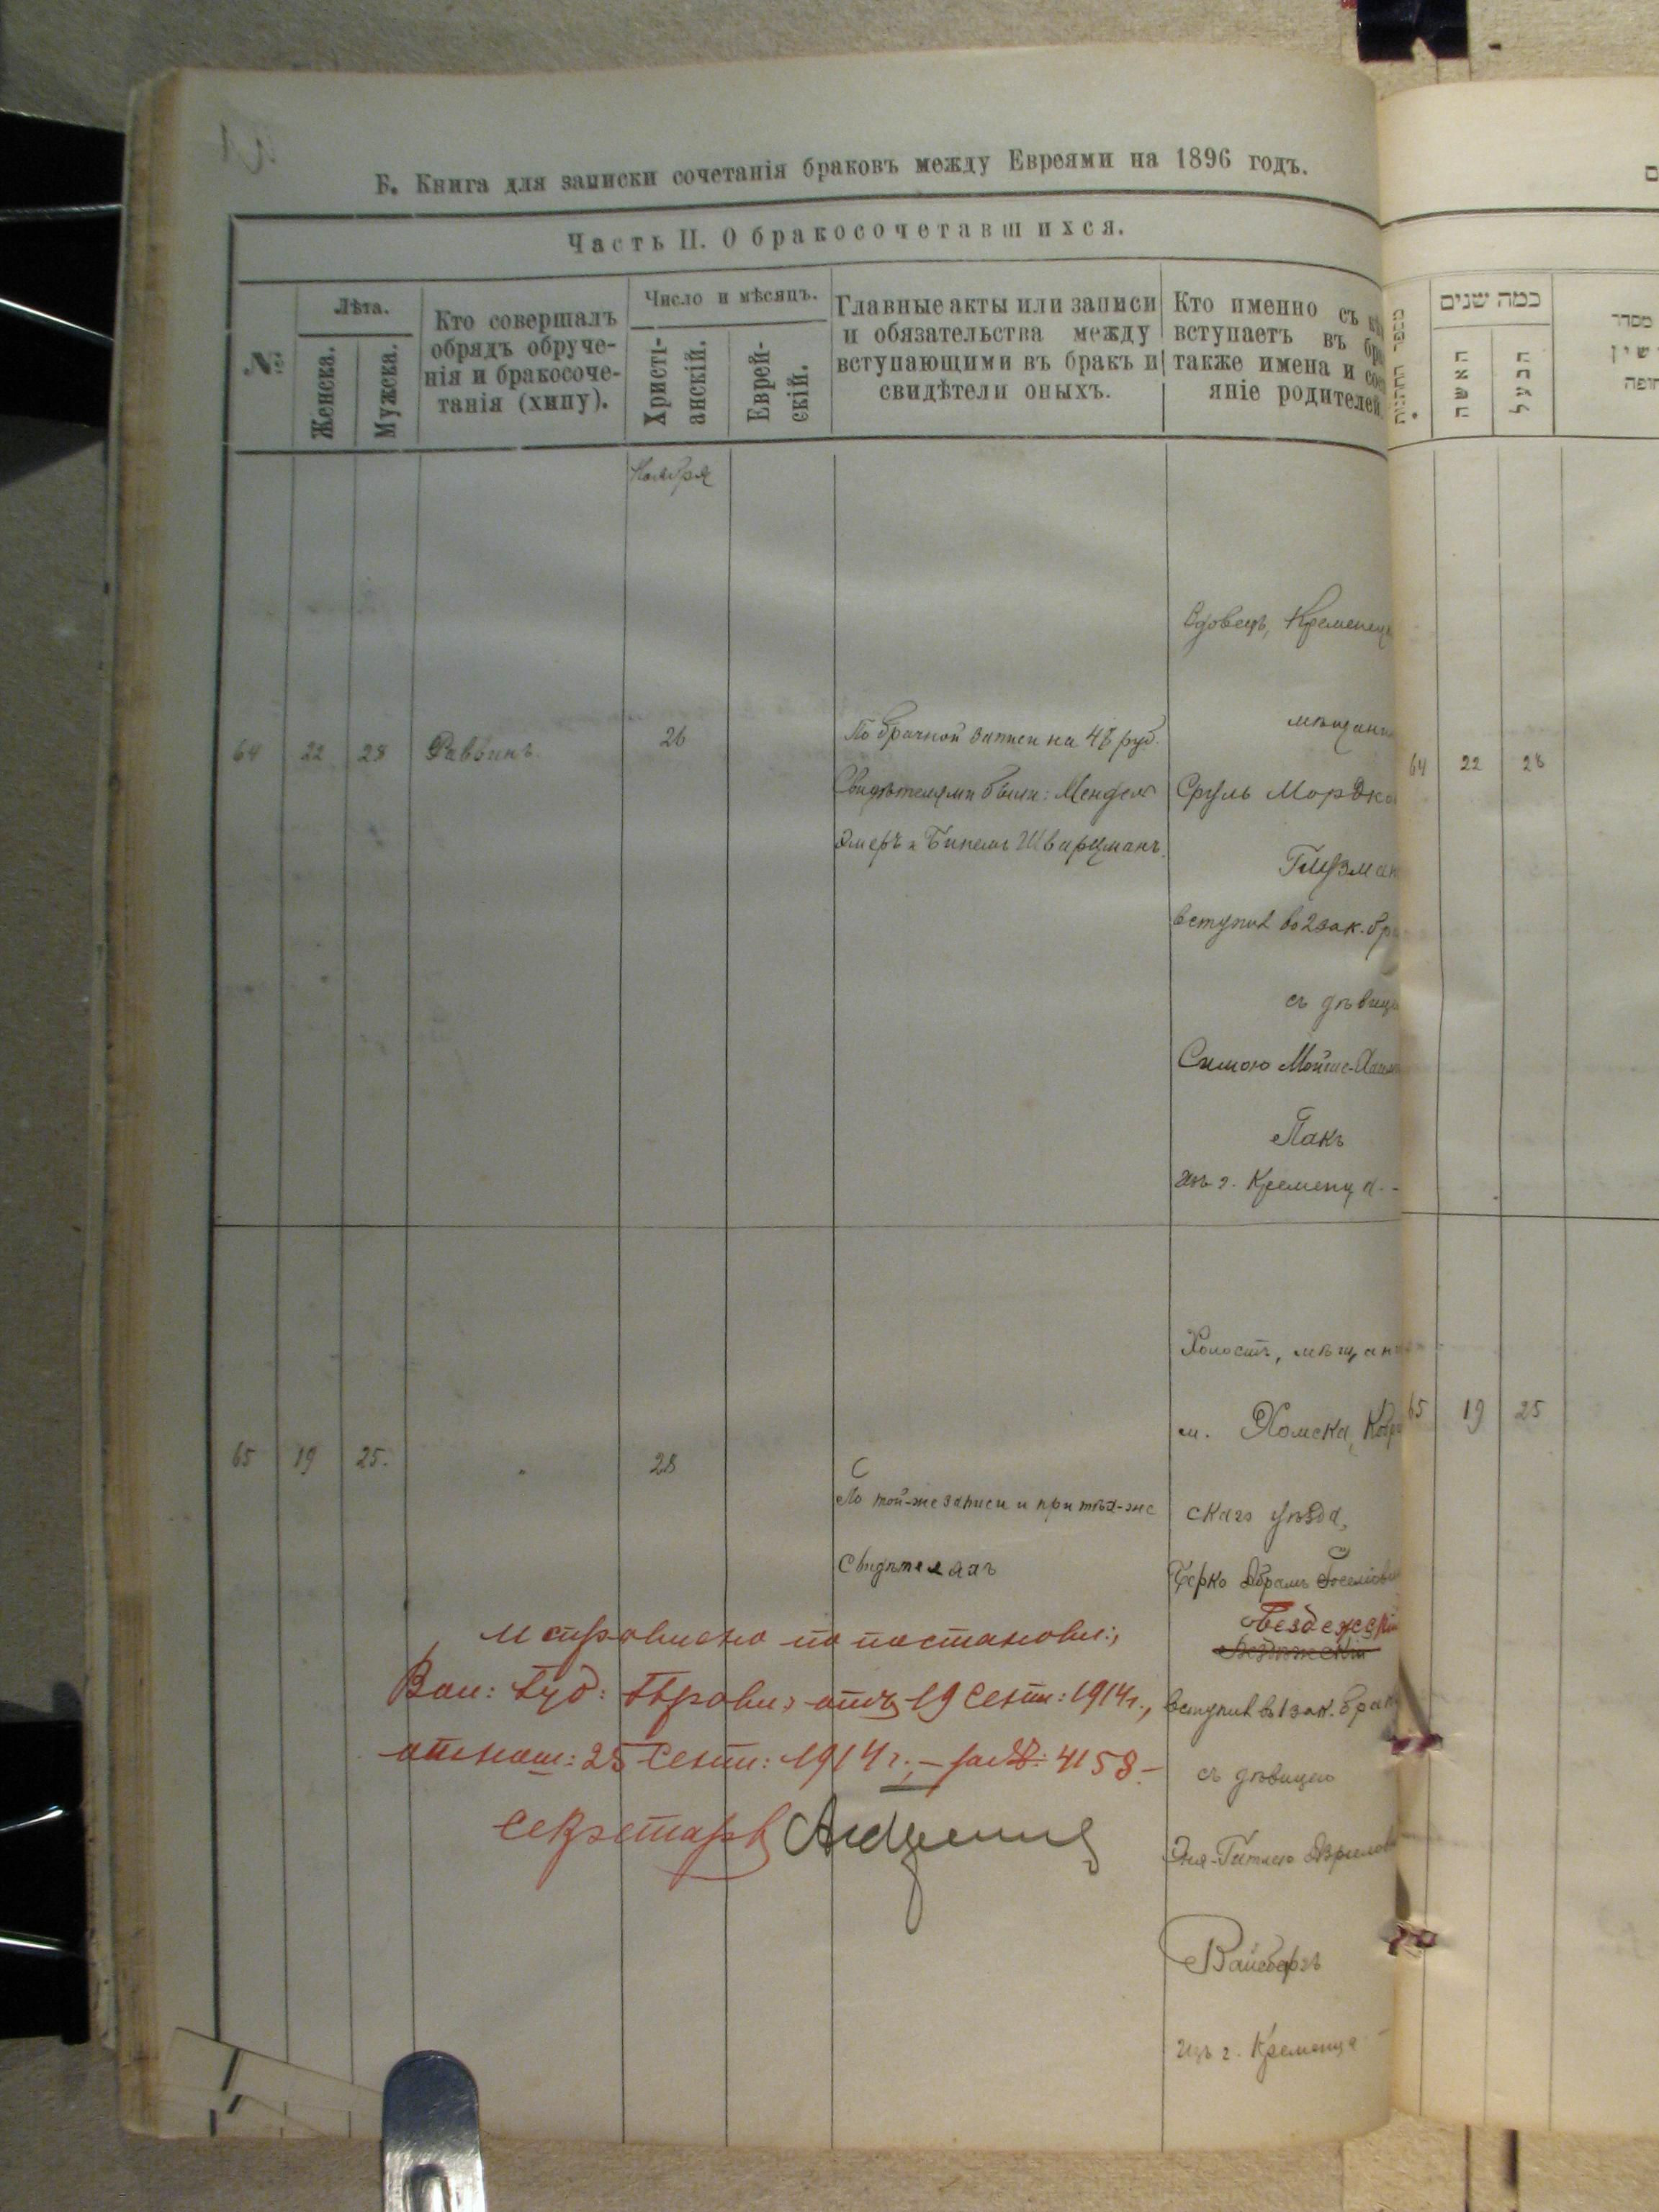 Б. Книга для записки сочетанія браковъ между Евреями на 1896 годъ.
Часть II. О бракосочетавшихся.
№
Лѣта.
Женска.
Мужска.
Кто совершалъ
обрядъ обруче-
нія и бракосоче-
танія (хипу).
Число и мѣсяцъ.
Христі-
анскій.
Еврей-
скій.
Главные акты или записи
и обязательства между
вступающими въ бракъ и
свидѣтели оныхъ.
Кто именно съ
вступаетъ въ
также имена и
яніе родителей
Ноября
64 22 28 Раввинъ. 26
По брачной записи на 48 руб.
Свидѣтелями были: Мендель
и Шварцманъ.
Вдовецъ, Кременец
мѣщани
Сруль Мордко
Глузман
вступил во 2 зак. бра
съ дѣвице
Симою Мойше-
Пакъ
изъ г. Кременца -
65 19 25. " 28
По той-же записи и при тѣх-же
свидѣтеляхъ
Холостъ, мѣщани
м. Хомска, Кобри
скаго уѣзда,
Берко Абрамъ
Бездежскій
вступил въ 1 зак. брак
съ дѣвицею
Эня-Гитлею
Вайсбергъ
изъ г. Кременца
исправлено по постановл:,
Вол: Губ: Правл, отъ 19 Сент: 1914 г.,
отнош: 25 Сент: 1914 г. - за №: 4158 -
Секретарь
כמה שנים
האשה
הבעל
64 22 28
65 19 25